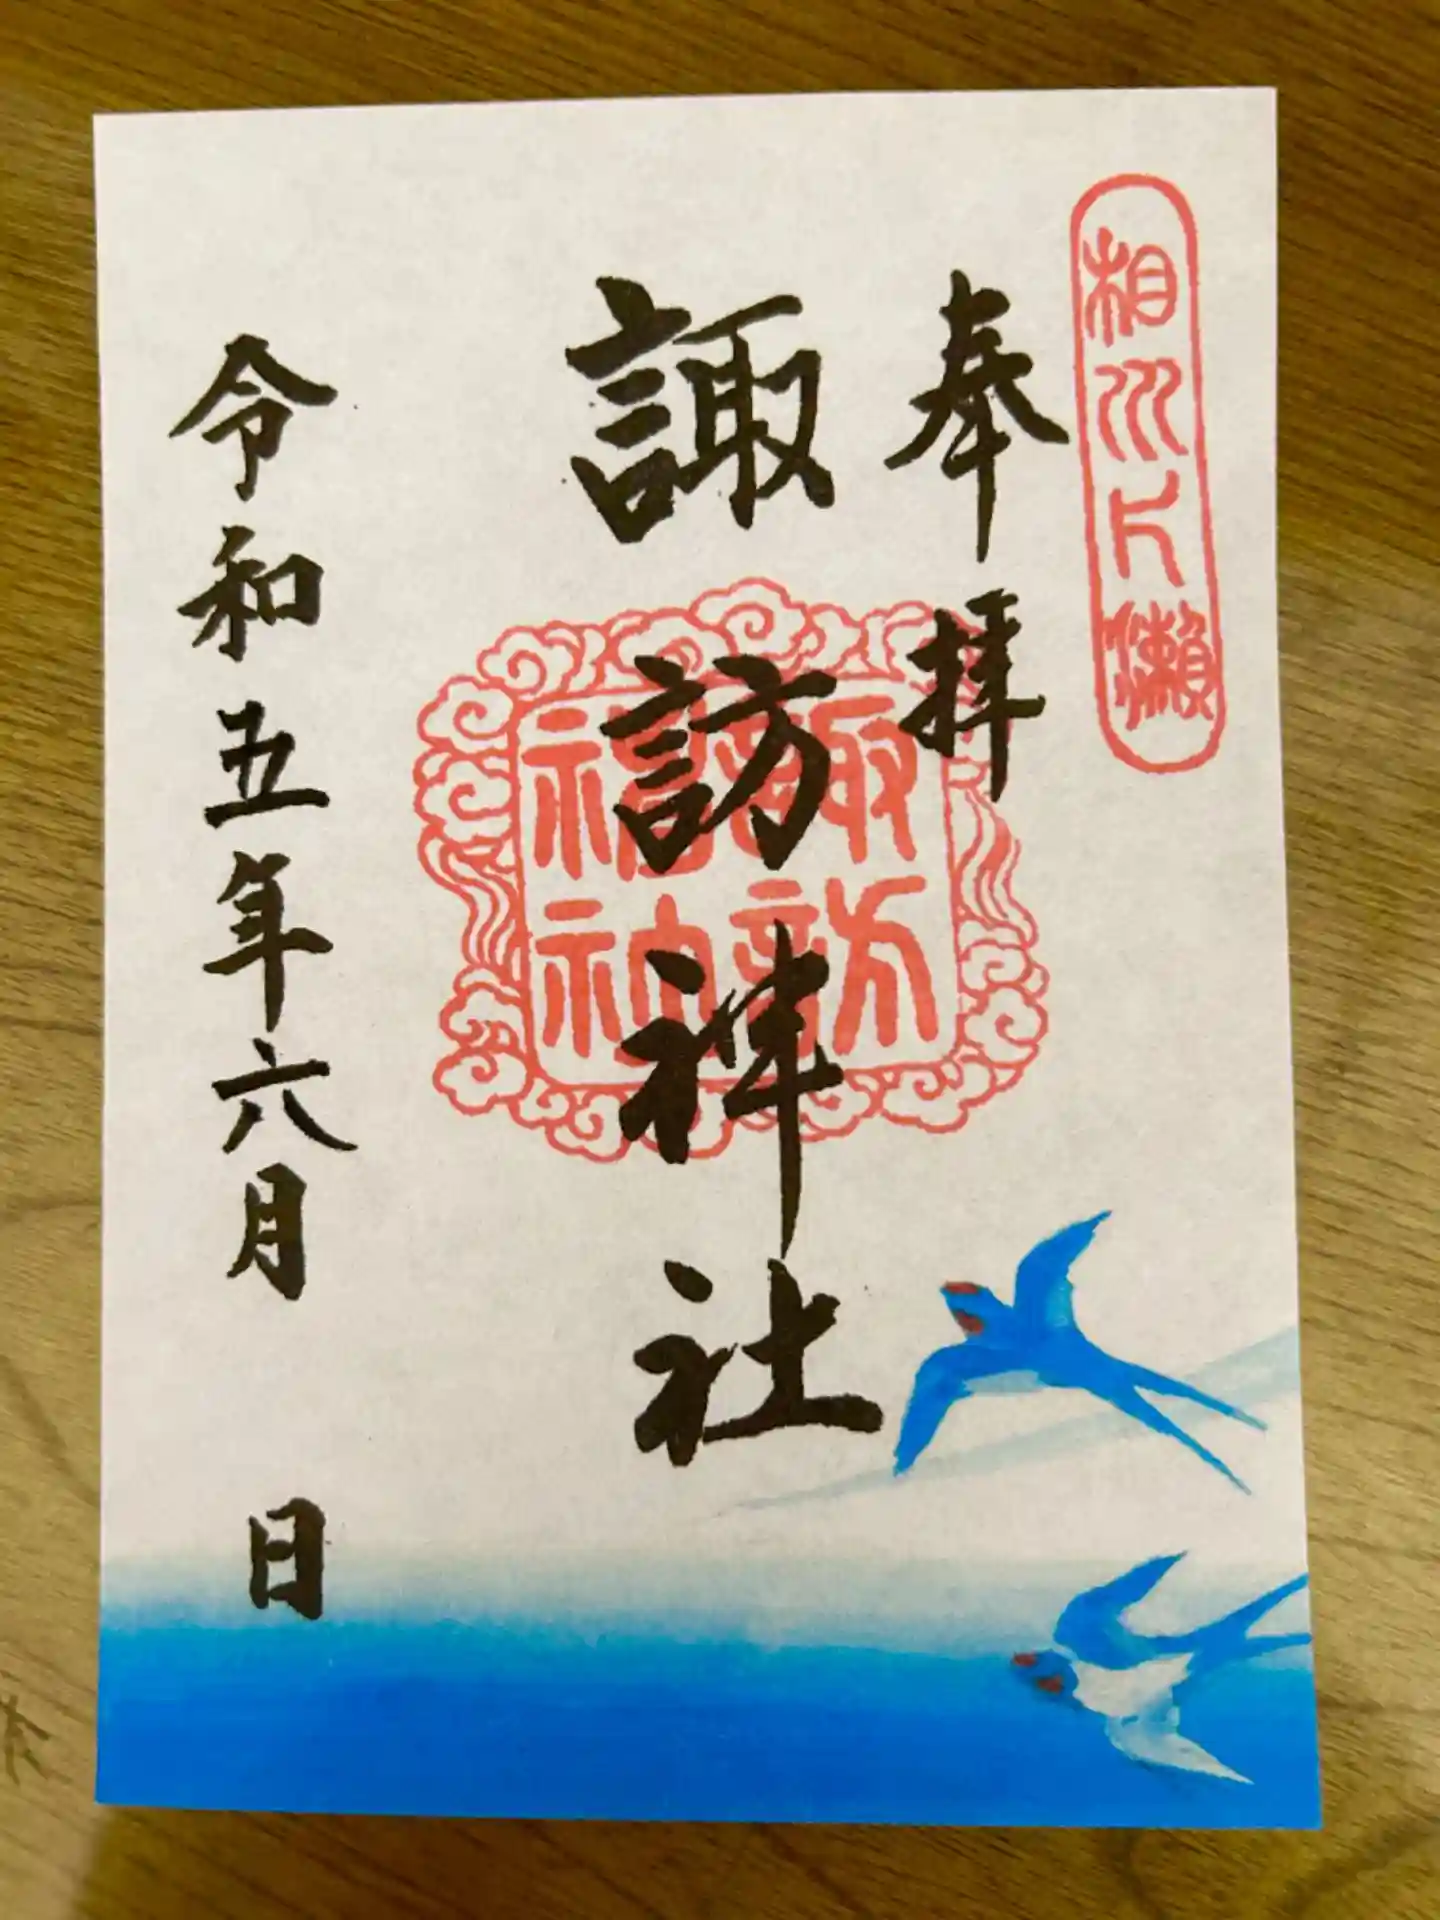 相州片瀬
奉拝
諏訪神社
諏訪
福神
令和五年六月 日